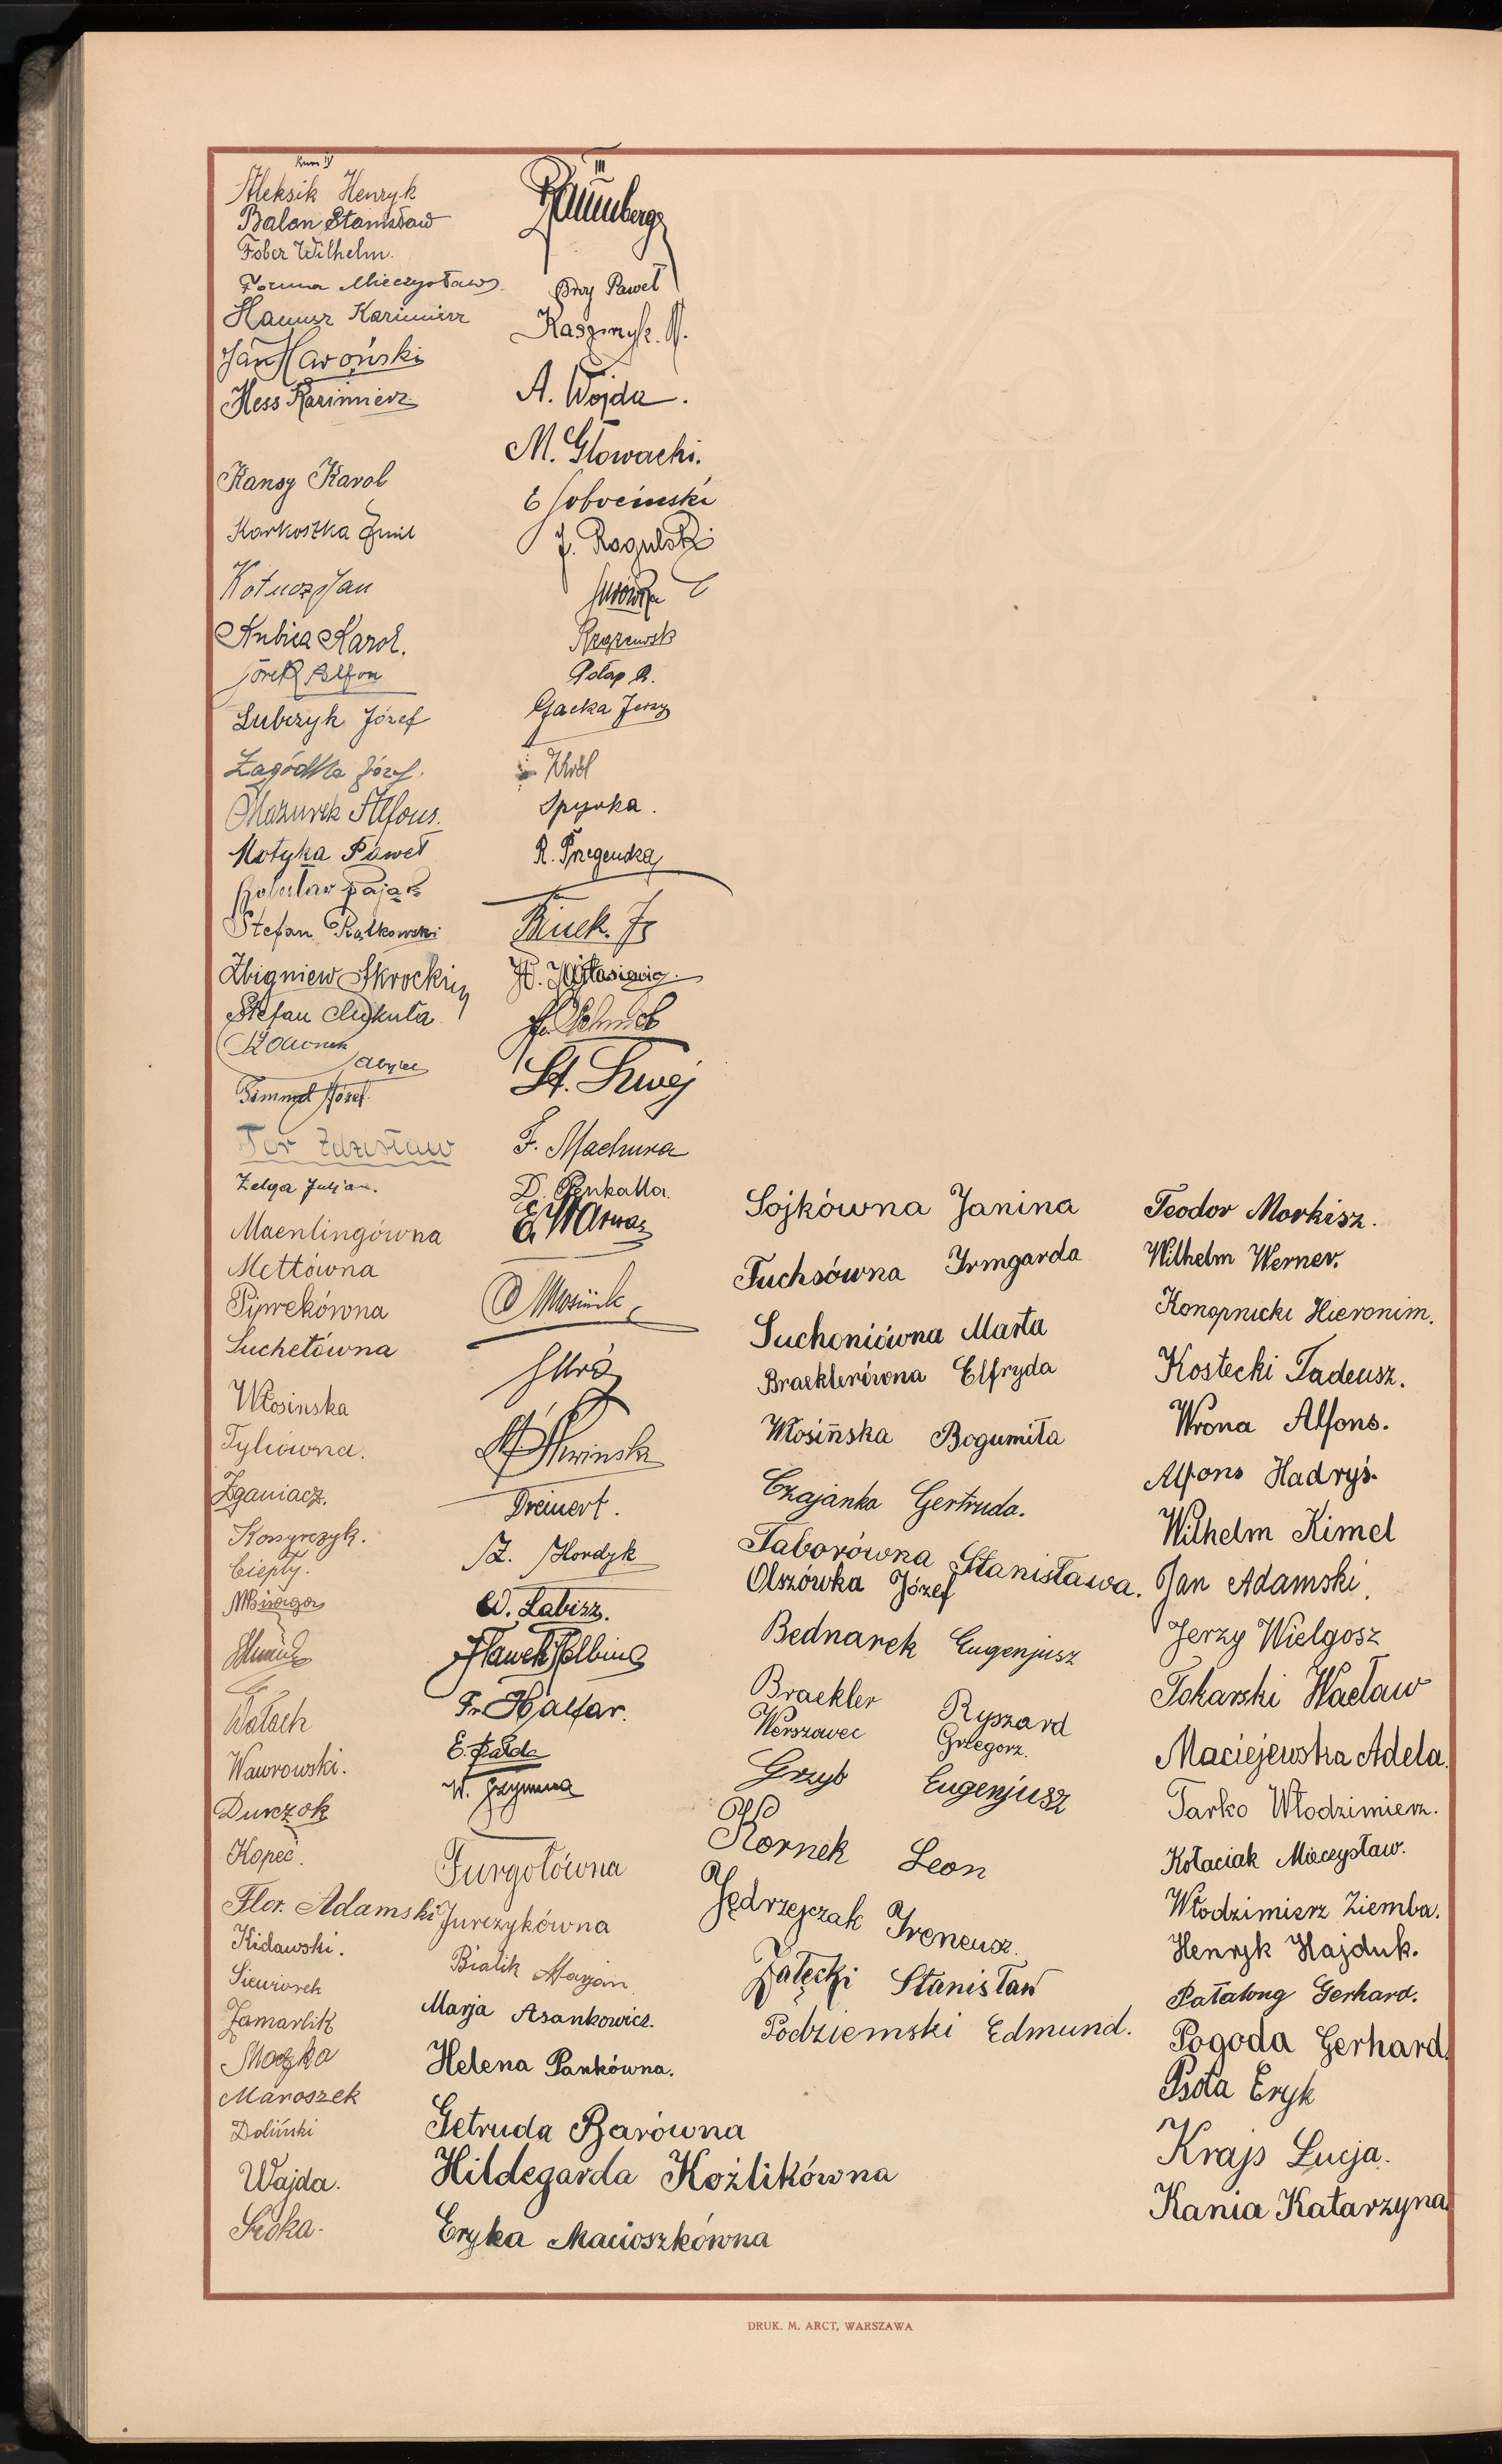 Kurs IV
Aleksik Henryk
Balon Stanisław
Fober Wilhelm.
Foruna Mieczysław
Hanusz Kazimierz
Jan Hawoński
Hess Kazimierz
Kansy Karol
Karkoszka Emil
Kotucz Jan
Kubica Karol.
Jorek Alfon
Lubczyk Józef
Zagódka Józef.
Mazurek Alfons.
Motyka Paweł
Bolesław Pająk
Stefan Piątkowski
Zbigniew Skrocki
Stefan Cukuła
Timmel Józef.
Tor Zdzisław
Zelga Juljan.
Maenlingówna
Mettówna
Piwrekówna
Suchetówna
Włosinska
Tyliówna.
Zganiacz.
Kossyrczyk.
Ciepły.
Wałach
Wawrowski.
Durczok
Kopeć.
Flor. Adamski
Kidawski.
Siewiorek
Jamarlik
Moczko
Maroszek
Doliński
Wajda.
Sroka.
III
Baumberg
Broy Paweł
Kaszmyk. A.
A. Wojda.
M. Głowacki.
E Sobociński
J. Rogulski
Gołąp R.
Gacka Jerzy
Król
Spyrka.
R. Przegendza
Binek. Fs
St. Szwej
F. Machura
D. Penkalla.
Dreinert.
Z. Hordyk
W. Labisz.
Fr. Halfar.
E. Pałda
W. Grzymna
Furgołówna
Jurczykówna
Bialik Marjan
Marja Asankowicz.
Helena Pankówna.
Getruda Barówna
Hildegarda Koźlikówna
Eryka Macioszkówna
Sojkówna Janina
Fuchsówna Irmgarda
Suchoniówna Marta
Braeklerówna Elfryda
Włosińska Bogumiła
Czajanka Gertruda.
Taborówna Stanisława.
Olszówka Józef
Bednarek Eugenjusz
Braekler Ryszard
Werszowec Grzegorz.
Grzyb Eugenjusz
Kornek Leon
Jędrzejczak Ireneusz.
Załęcki Stanisław
Podziemski Edmund.
Teodor Morkisz.
Wilhelm Werner.
Konopnicki Hieronim.
Kostecki Tadeusz.
Wrona Alfons.
Alfons Hadryś.
Wilhelm Kimel
Jan Adamski.
Jerzy Wielgosz
Tokarski Wacław
Maciejewska Adela.
Tarko Włodzimierz.
Kołaciak Mieczysław.
Włodzimierz Ziemba.
Henryk Hajduk.
Patalong Gerhard.
Pogoda Gerhard.
Psota Eryk
Krajs Łucja.
Kania Katarzyna.
DRUK. M. ARCT, WARSZAWA